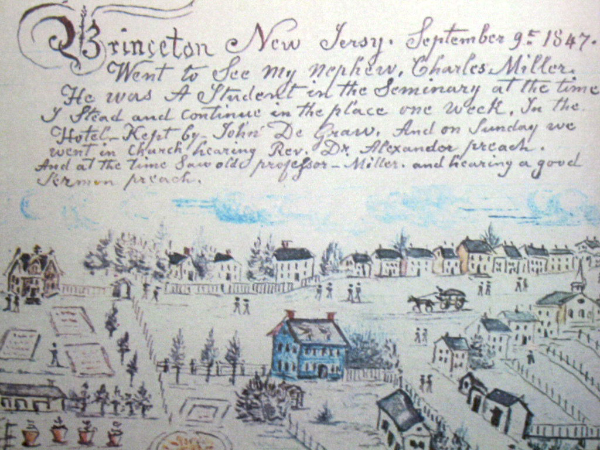 Princeton New Jersy. September 9th 1847.
Went to See my nephew, Charles Miller.
He was A Student in the Seminary at the time
I Stead and continue in the place one week. In the
Hotel - Kept by - John De Graw. And on Sunday we
went in Church hearing Rev. Dr. Alexander preach.
And at the time Saw old professor - Miller. and hearing a good
Sermon preach.